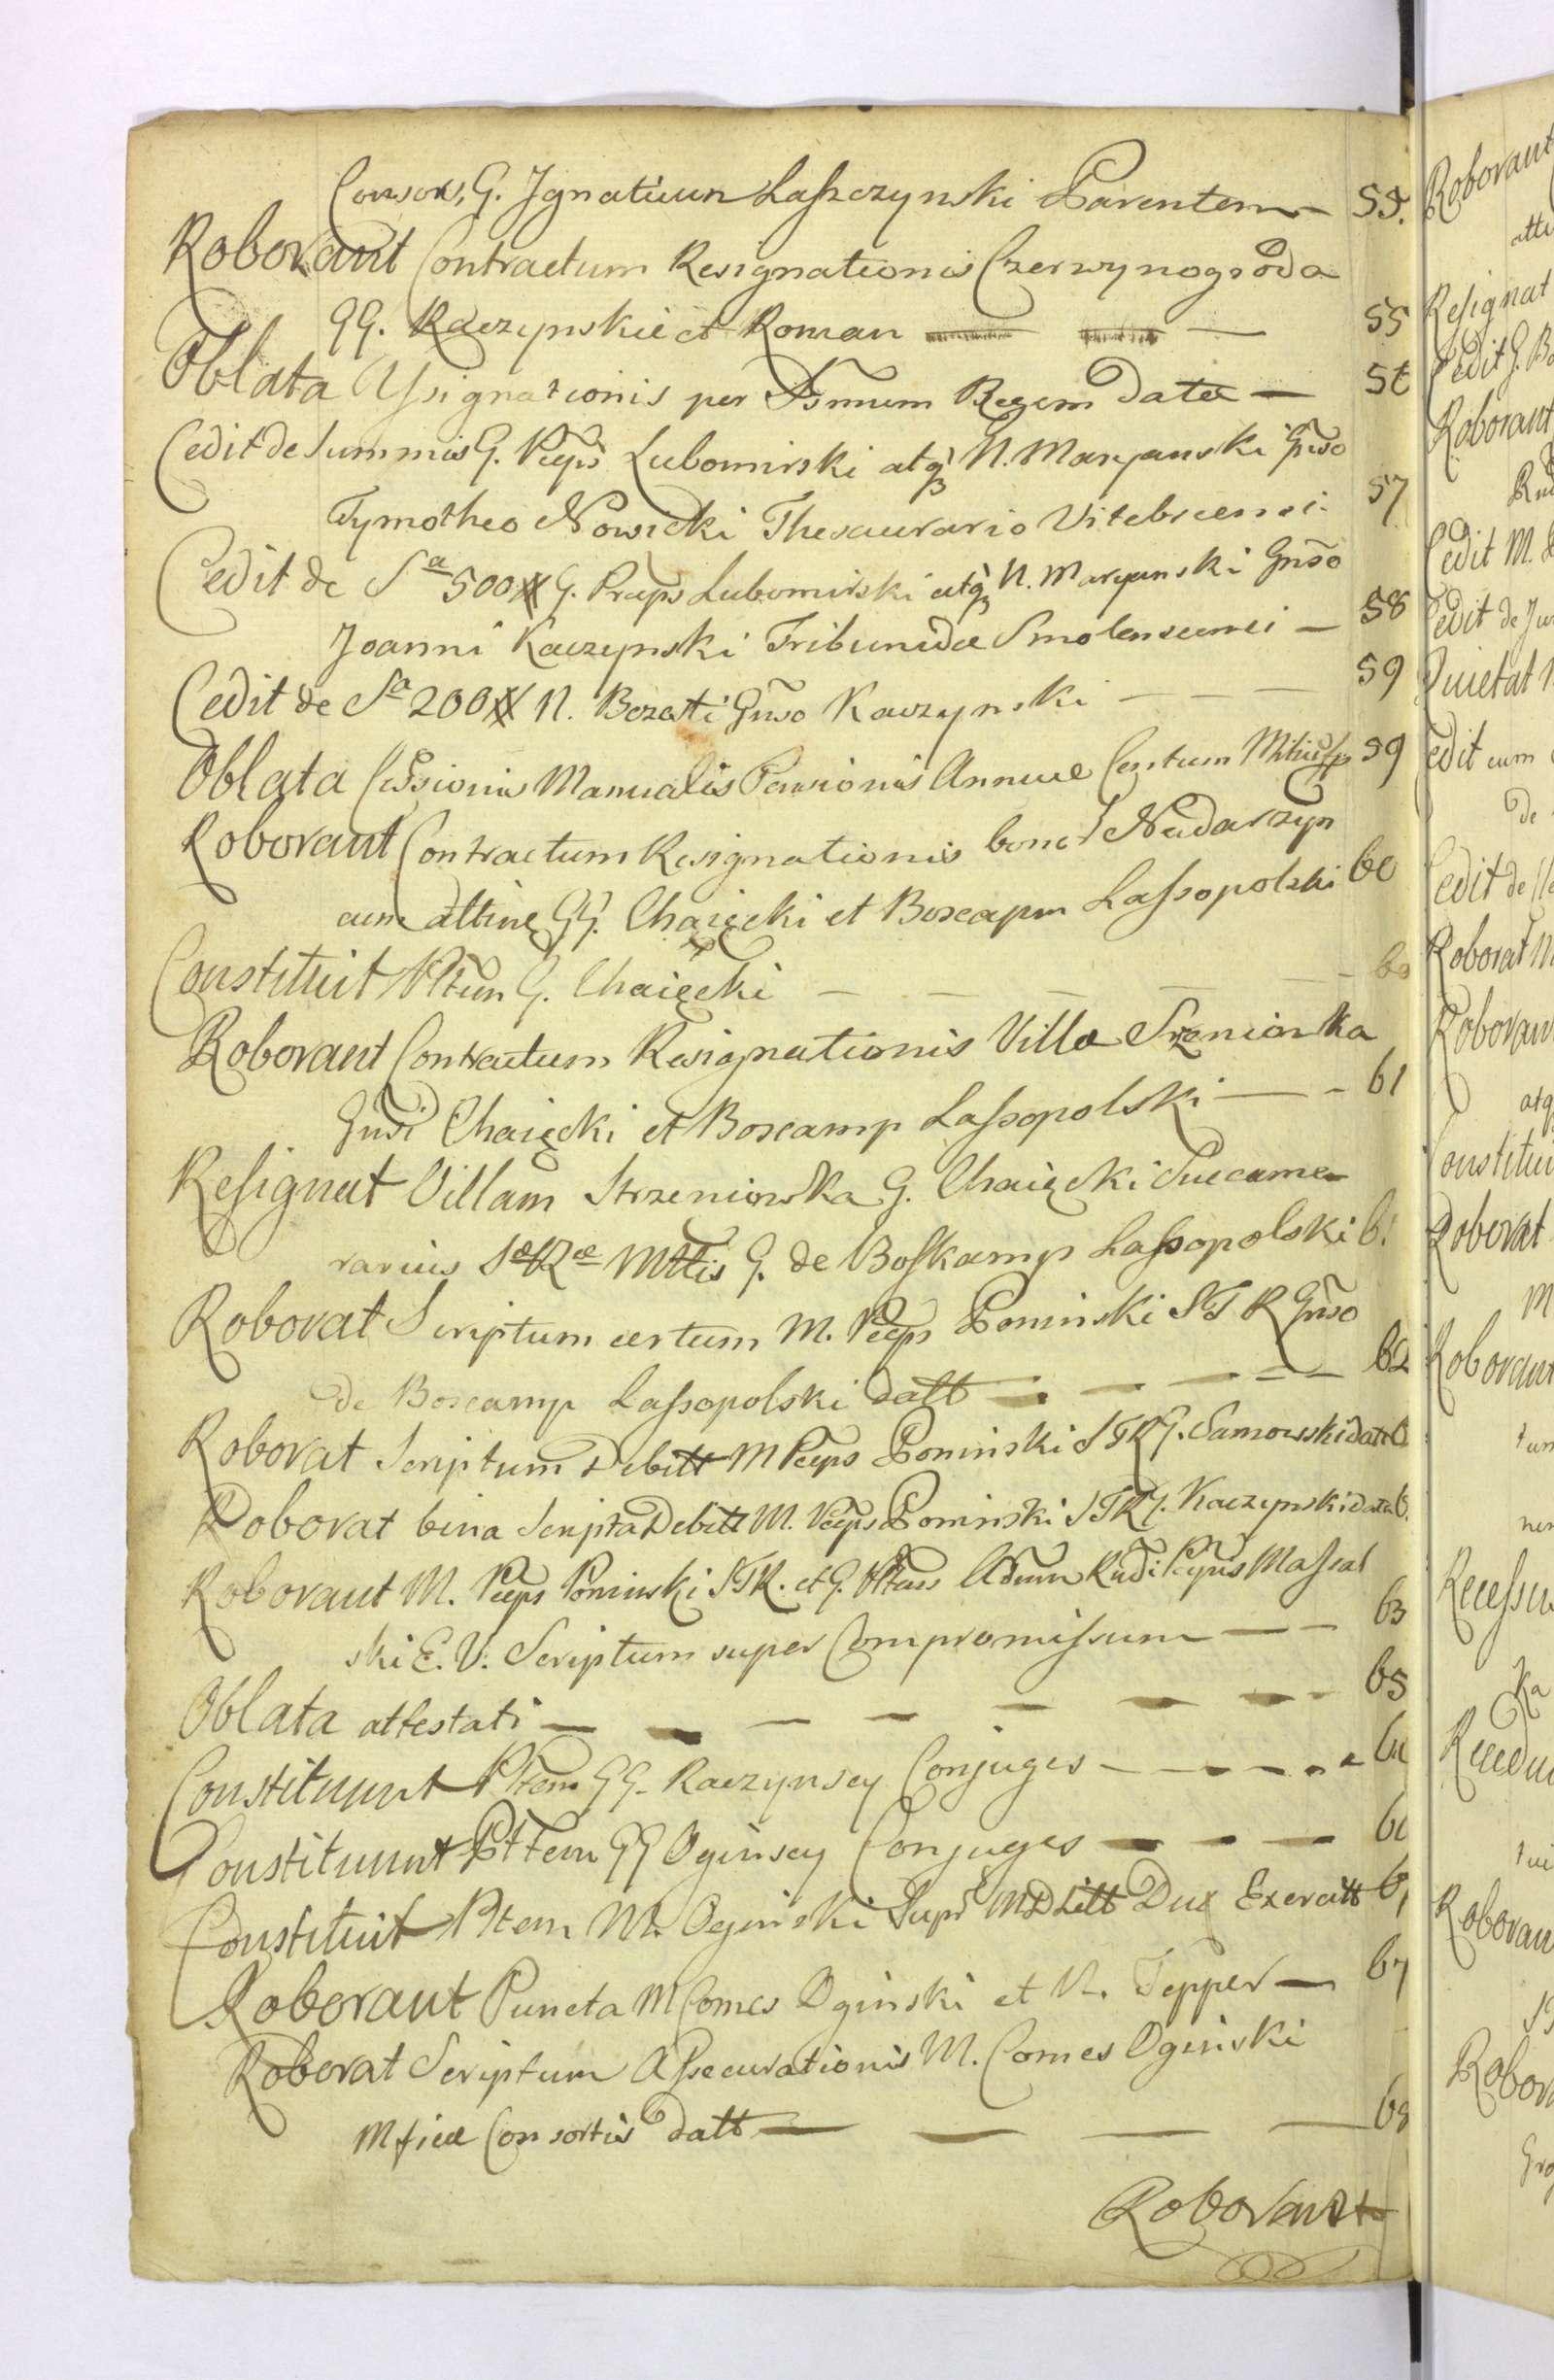 Consors, G. Ignatium Laszczynski Parentem — 55.
Roborant Contractum Resignationis Czerwynogroda
GG. Raczynskie et Roman — 55
Oblata Assignationis per Ssmum Regem datæ — 56
Cedit de Summis G. Pceps Lubomirski atq3 N. Maryanski Gnso
Tymotheo Nowicki Thesaurario Vitebscensi. 57
Cedit de Sa 500 # G. Prceps Lubomirski atq3 N. Maryanski Gnso
Joanni Kaczynski Tribunidæ Smolenscensi — 58
Cedit de Sa 200 # N. Bozati Gnso Kaczynski — — — 59
Oblata Cessionis Manualis Pensionis Annuæ Centum 59
Roborant Contractum Resignationis bonor Nadarzyn
cum attine GG. Chaięcki et Boscamp Lassopolski 60
Constituit Pltem G. Chaięcki — — — — — 60
Roborant Contractum Resignationis Villæ Srzeniowka
Gnsi Chaięcki et Boscamp Lassopolski — — 61
Resignat Villam Strzeniowka G. Chaięcki Succame-
rarius Sæ Ræ Mttis G. de Boskamp Lassopolski 61
Roborat Scriptum certum M. Pceps Poninski STR Gnso
de Boscamp Lassopolski datt — — — — — 62
Roborat Scriptum Debitt M Pceps Poninski STR G. Sarnowski datt
Roborat bina Scripta Debitt M. Pceps Poninski STR G. Kaczynski data
Roborant M. Pceps Poninski STR. et G. Admm Rndi Pcpis Massal
ski E. V. Scriptum super Compromissum — — 63
Oblata attestati — — — — — — — 65
Constituunt Pltem GG. Raczynscy Conjuges — — — — —
Constituunt Pltem GG Oginscy Conjuges — — —
Constituit Pltem M. Oginski Supr MDLitt Dux Exercitt
Roborant Puncta M Comes Oginski et N. Tepper — 67
Roborat Scriptum Assecurationis M. Comes Oginski
Mficæ Consortis datt — — — — 68
Roborant
Roborant
atti
Resignat
Cedit G. Bo
Roborant
Cedit M.
Cedit de Ju
Quietat
Cedit cum
de
Cedit de
Roborat M
Roborant
atq
Constitui
Roborat
M
Roborant
tum
nen
Recessu
Ka
Recedu
tui
Roboran
Robor